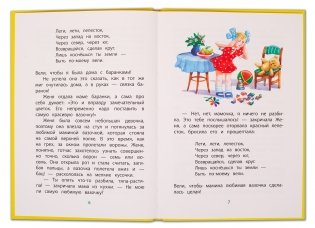 Лети, лети, лепесток,
Через запад на восток,
Через север, через юг,
Возвращайся, сделав круг.
Лишь коснёшься ты земли —
Быть по-моему вели.
Вели, чтобы я была дома с баранками!
Не успела она это сказать, как в тот же
миг очутилась дома, а в руках — связка ба-
ранок!
Женя отдала маме баранки, а сама про
себя думает: «Это и вправду замечательный
цветок. Его непременно надо поставить
в самую красивую вазочку!»
Женя была совсем небольшая девочка,
поэтому она влезла на стул и потянулась за
любимой маминой вазочкой, которая стояла
на самой верхней полке. В это время, как
на грех, за окном пролетали вороны. Жене,
понятно, тотчас захотелось узнать совершен-
но точно, сколько ворон — семь или во-
семь. Она открыла рот и стала считать, заги-
бая пальцы, а вазочка полетела вниз и —
бац! — раскололась на мелкие кусочки.
— Ты опять что-то разбила, тяпа-растя-
па! — закричала мама из кухни. — Не мою
ли самую любимую вазочку?
6
— Нет, нет, мамочка, я ничего не разби-
ла. Это тебе послышалось! — закричала Же-
ня, а сама поскорее оторвала красный лепе-
сток, бросила его и прошептала:
Лети, лети, лепесток,
Через запад на восток,
Через север, через юг,
Возвращайся, сделав круг.
Лишь коснёшься ты земли —
Быть по-моему вели.
Вели, чтобы мамина любимая вазочка сдела-
лась целая!
7